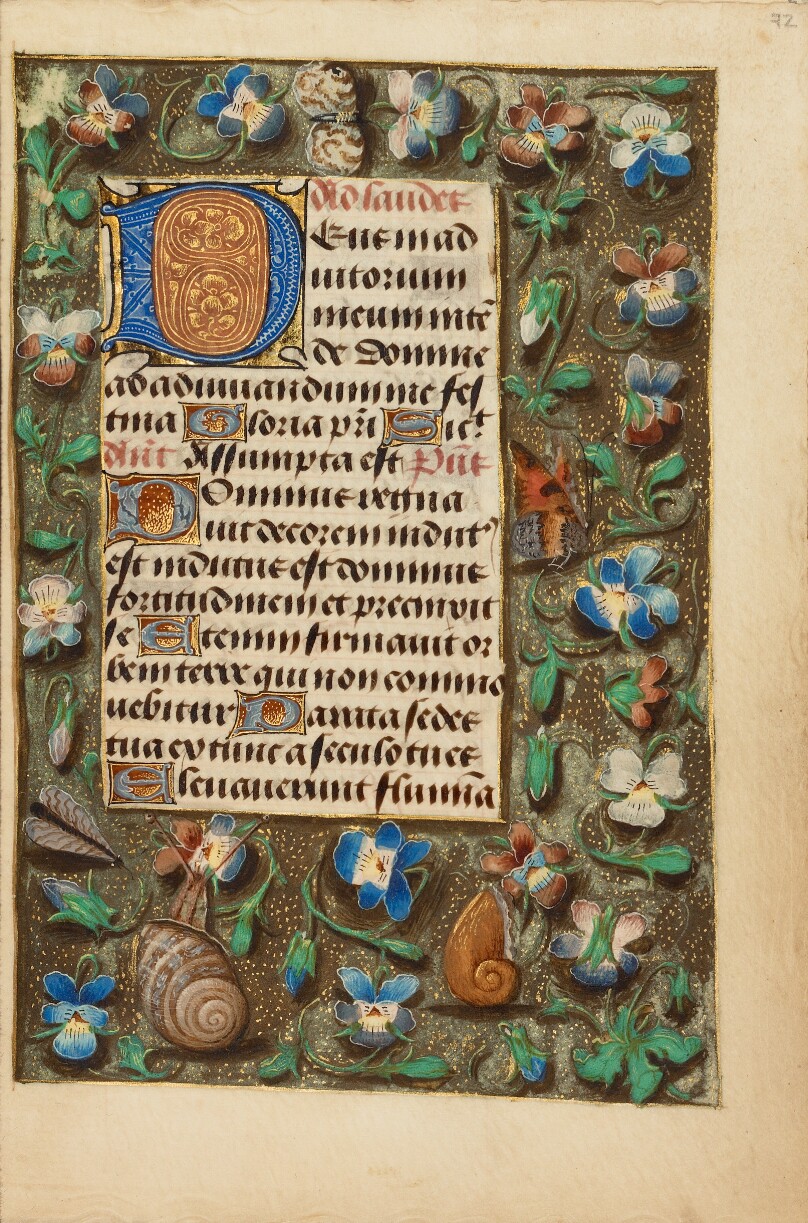 72
Ad laudes
Deus in ad
iutorium
meum intē
de Domine
ab adiuuandum me fes
tina Gloria pri Sict
Ant Assumpta est Ps
Dominus regna
uit decorem indut
est indutus est dominus
fortitudinem et precinxit
se Etenim firmauit or
bem terre qui non commo
uebitur Parata sedes
tua ex tunc a seculo tu es
Eleuauerunt flumīa